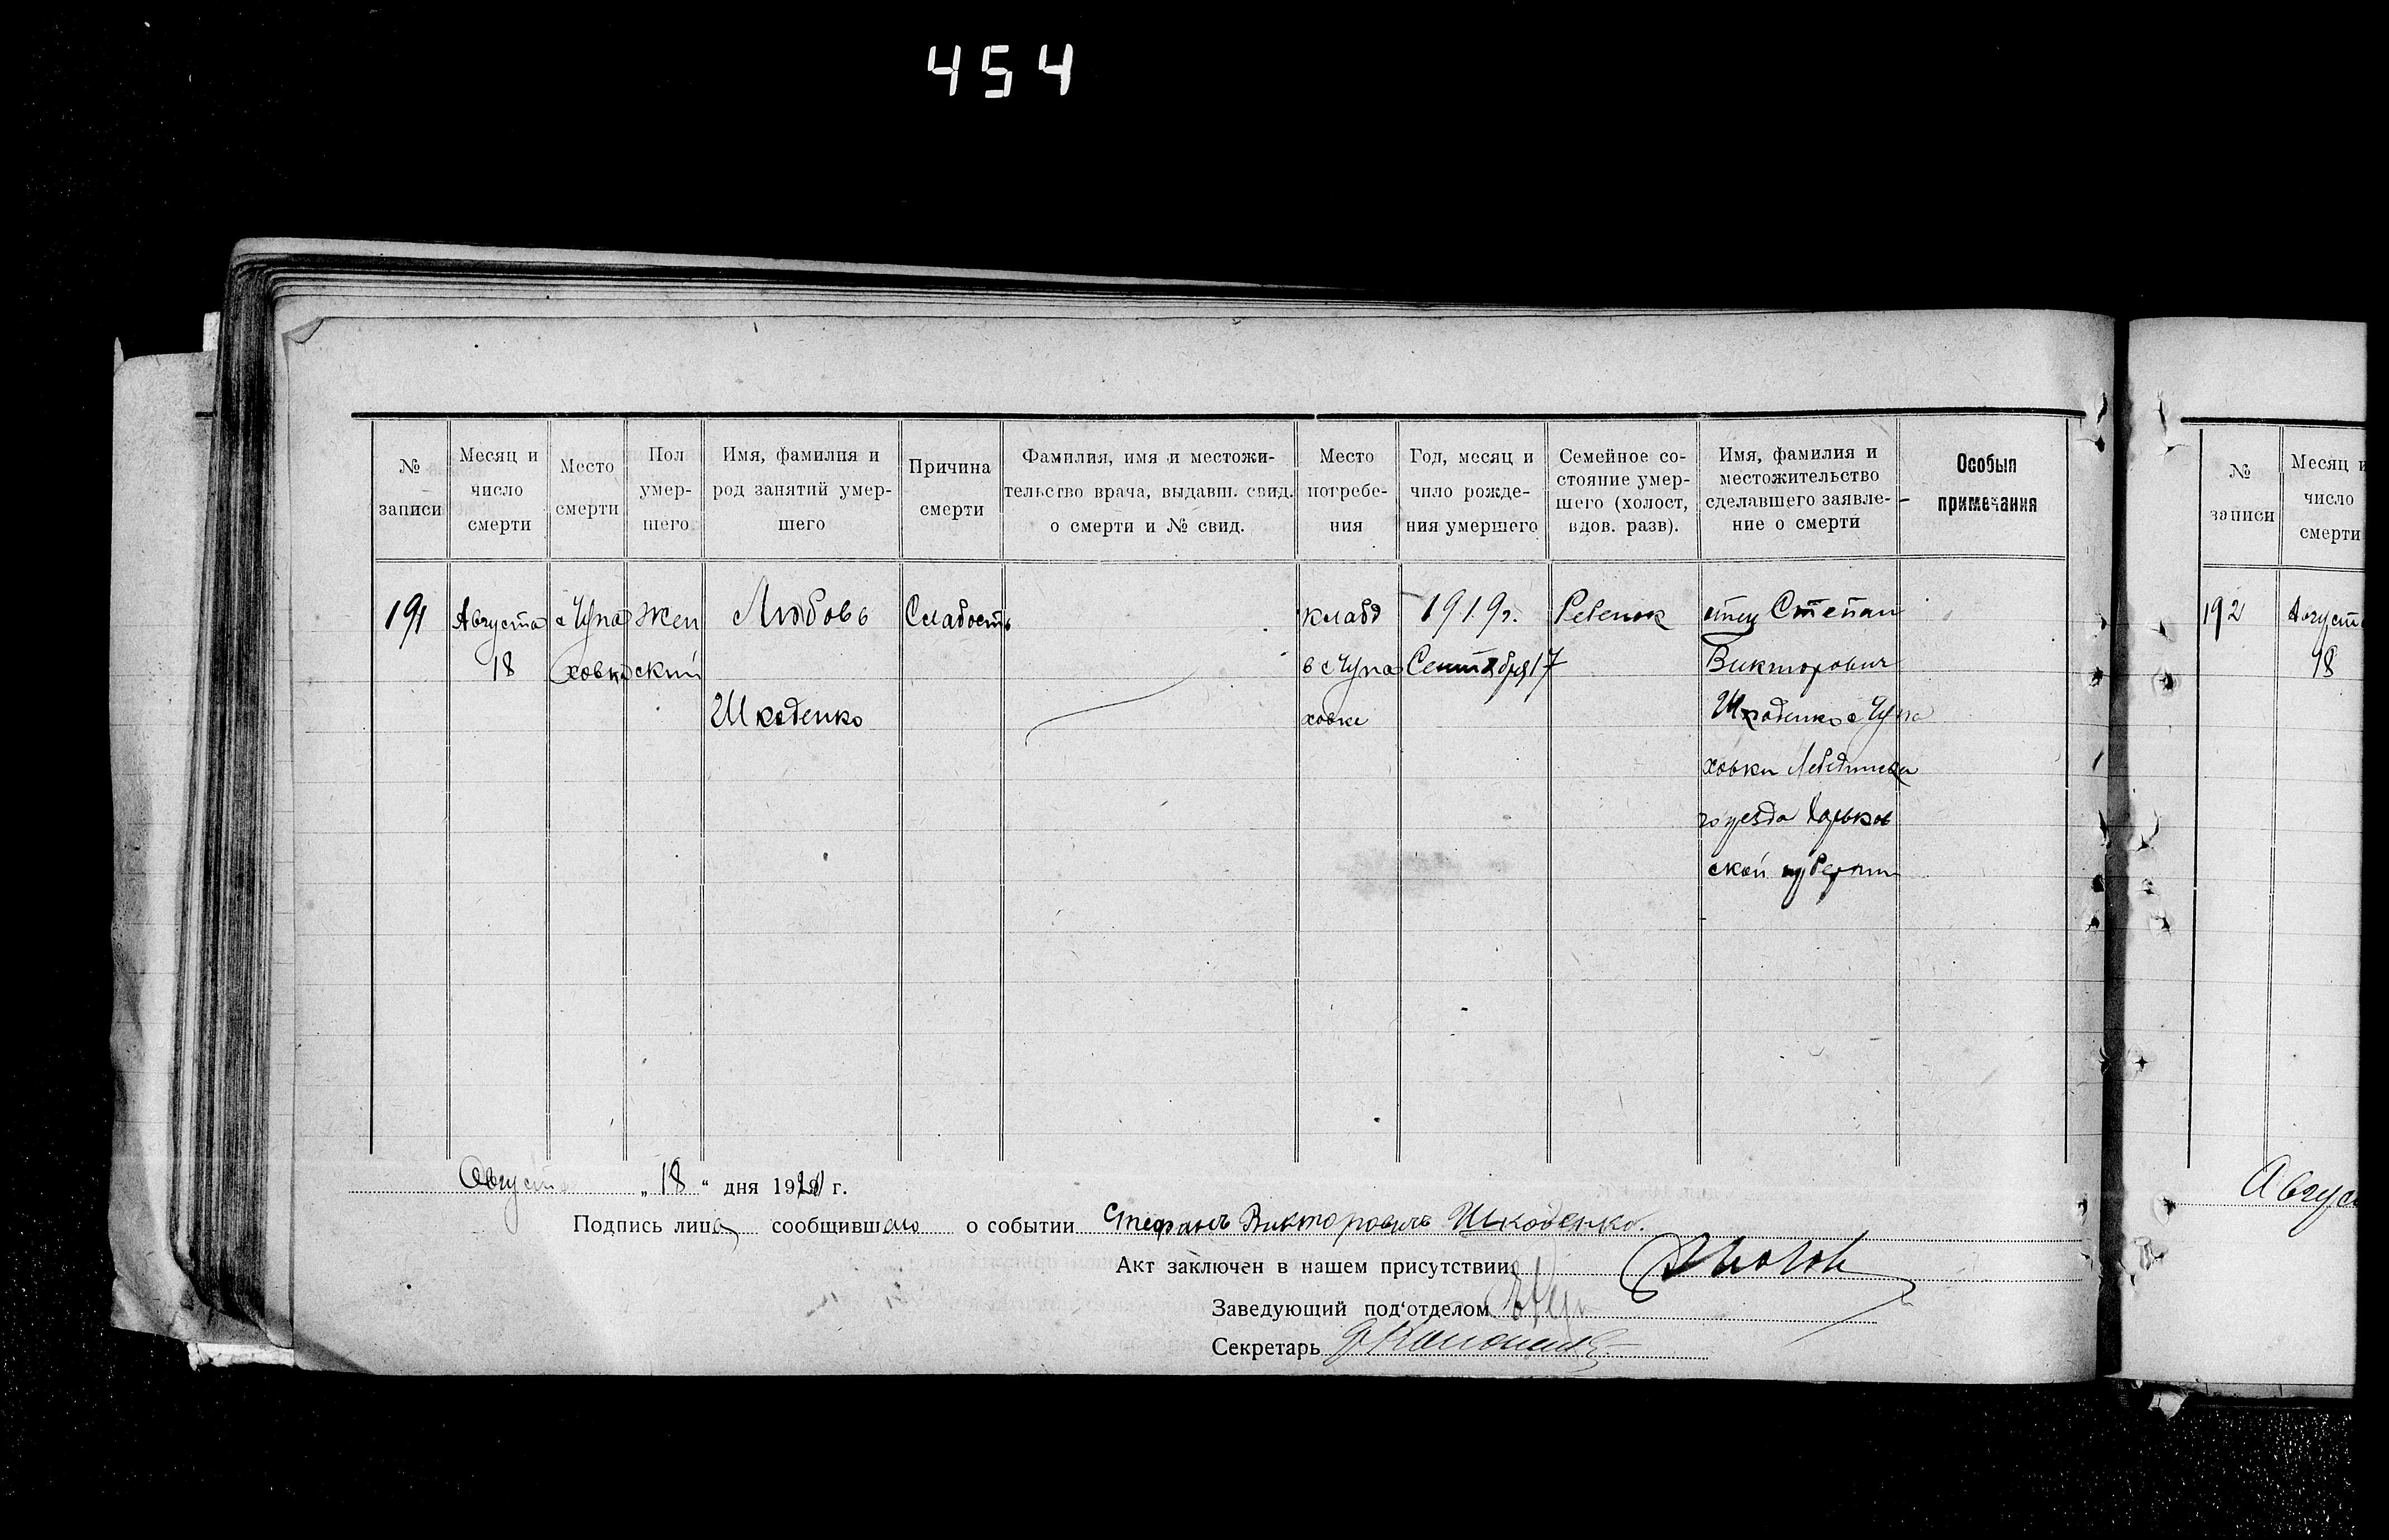 454
№ записи
Месяц и число смерти
Место смерти
Пол умер-шего
Имя, фамилия и род занятий умер-шего
Причина смерти
Фамилия, имя и местожи-тельство врача, выдавш. свид. о смерти и № свид.
Место погребе-ния
Год, месяц и число рожде-ния умершего
Семейное со-стояние умер-шего (холост, вдов. разв).
Имя, фамилия и местожительство сделавшего заявле-ние о смерти
Особыя примечания
191
Августа
18
с Чупа
ховка
Жен
ский
Любовь
Шкоденко
Слабость
кладб
в с Чупа
ховке
1919г.
Сентября 17
Ребенок
отец Степан
Викторович
Шкоденко с Чупа
ховки Лебединска
го уезда Харьков
ской губернии
Августа „18“ дня 1920 г.
Подпись лица сообщившаго о событии Стефанъ Викторовичъ Шкоденко.
Акт заключен в нашем присутствии
Заведующий под'отделом
Секретарь
№ записи
Месяц и число смерти
192
Августа
18
Август